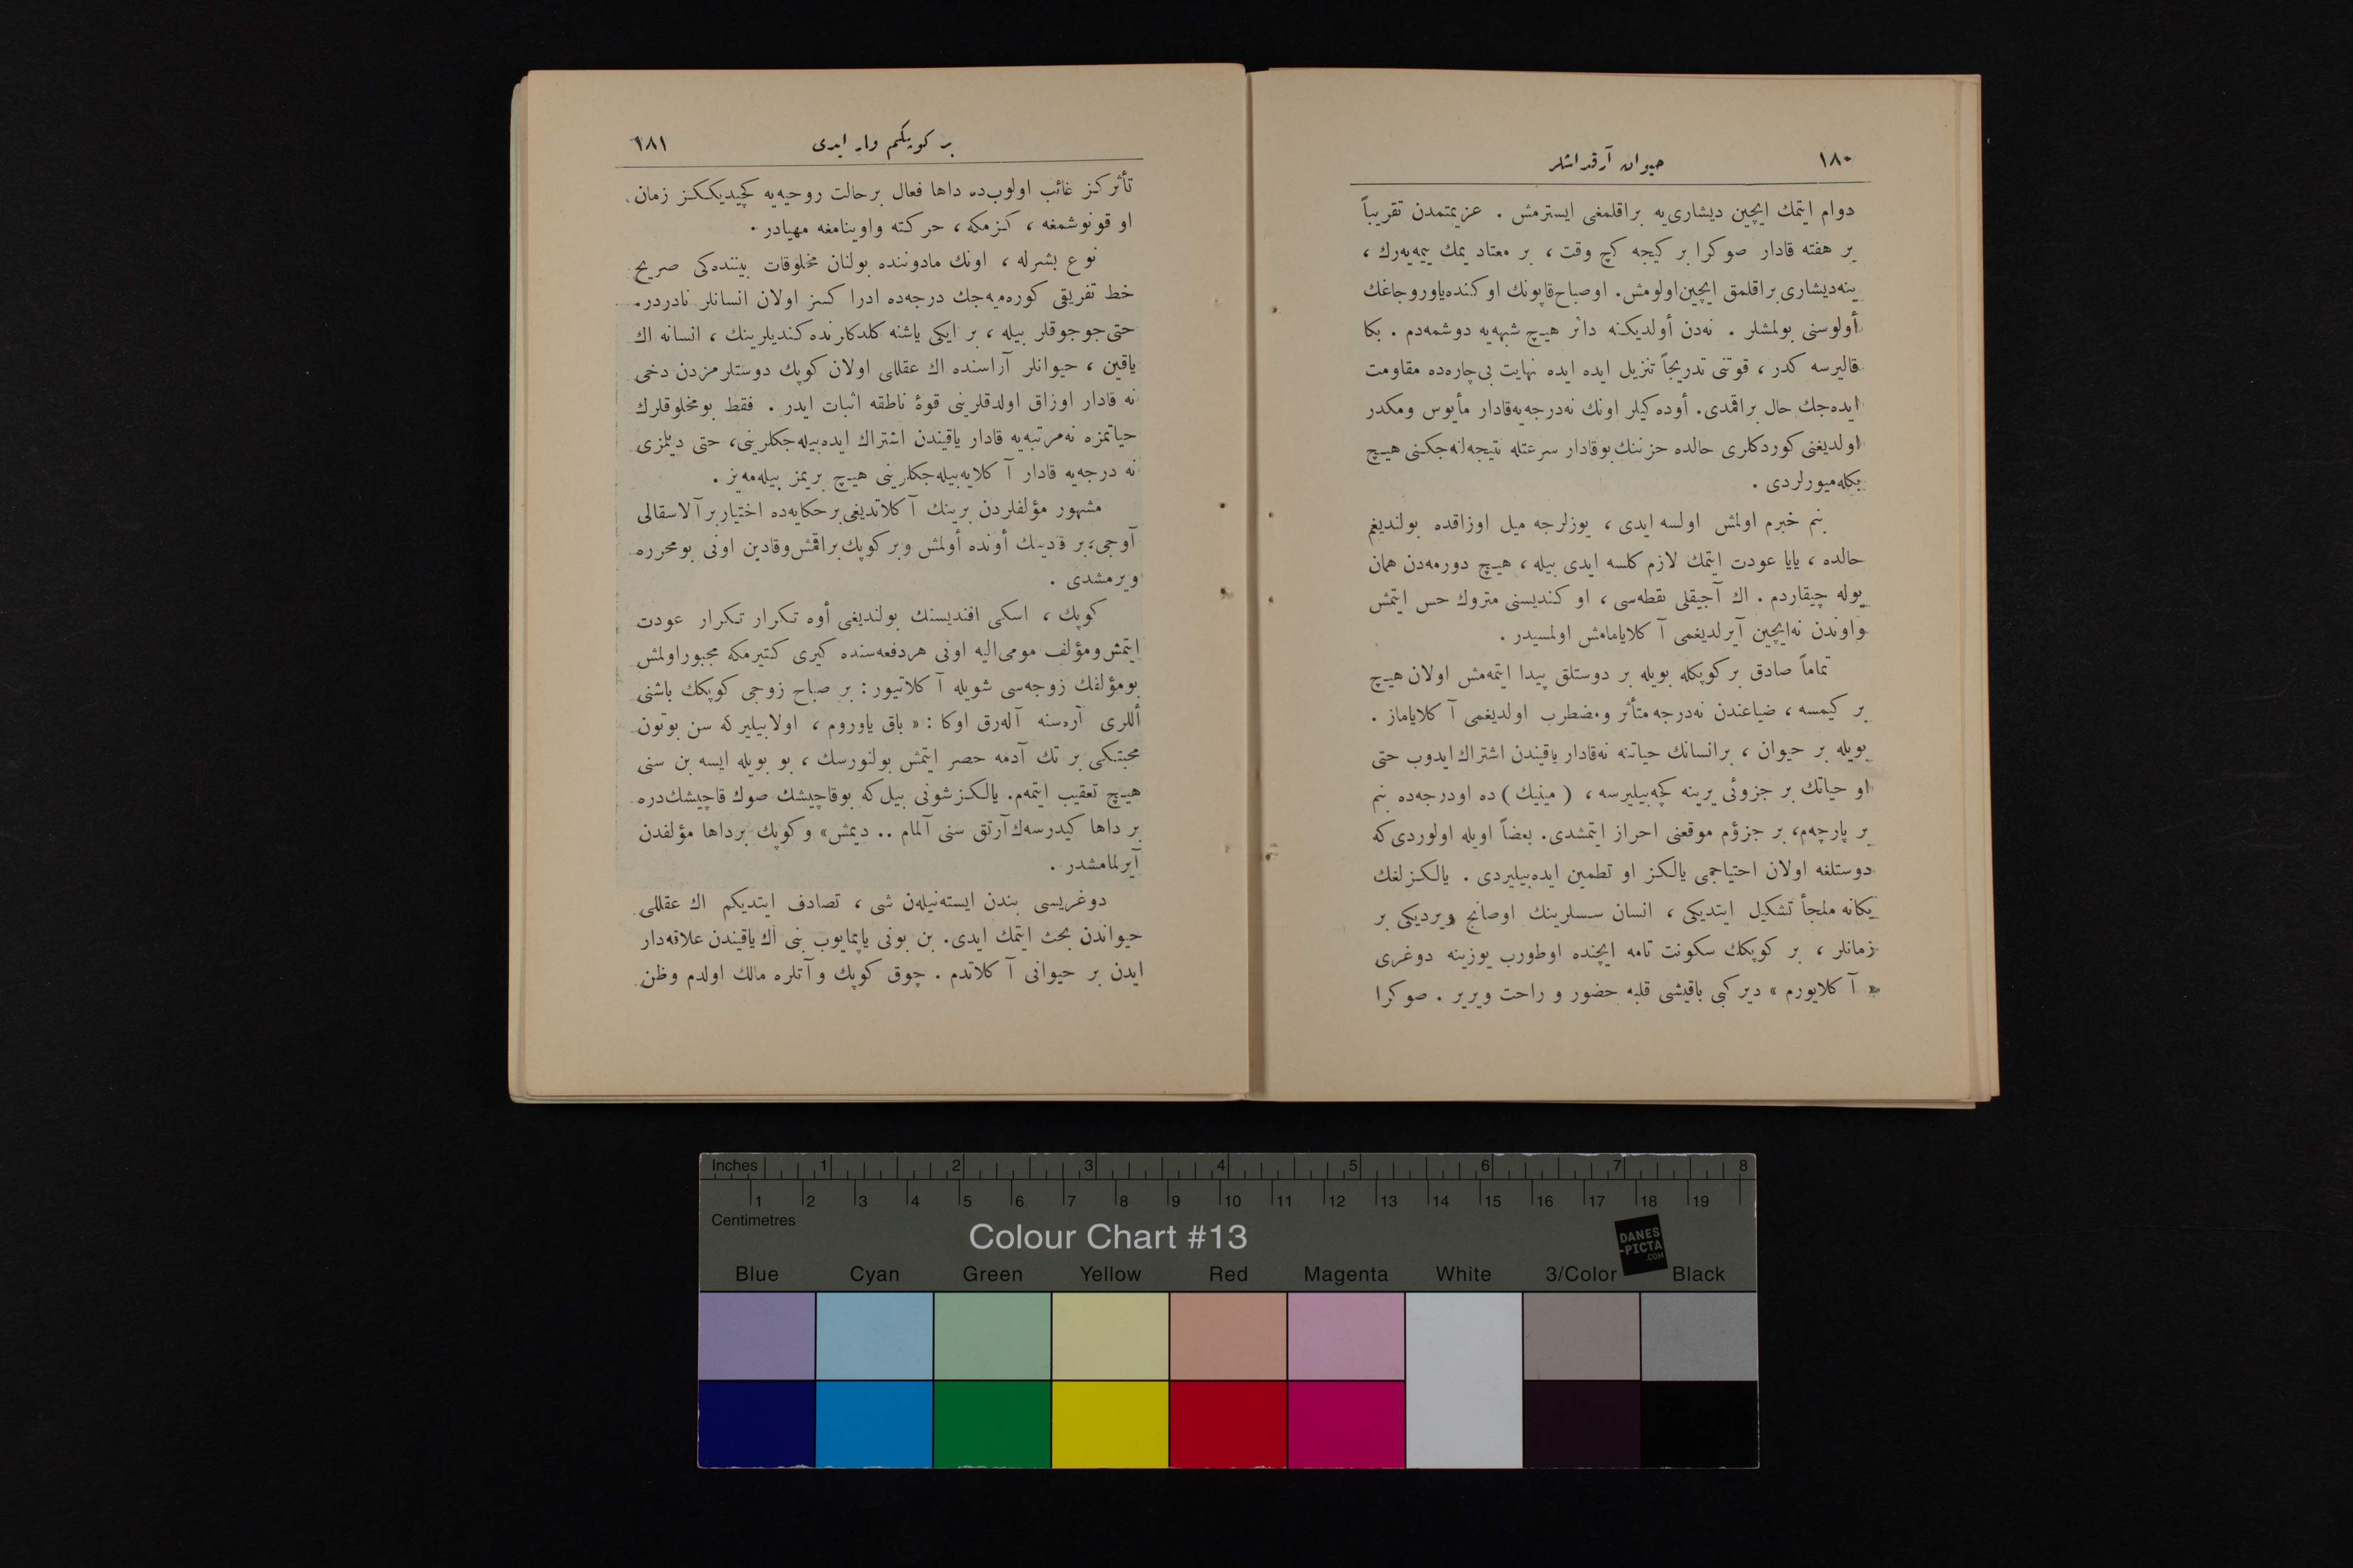 ١٨٠
حيوان آرقداشلر
دوام ايتمك ايچين ديشارى‌يه براقلمغى ايسترمش . عزيمتمدن تقريباً
بر هفته قادار صوكرا بر كيجه كچ وقت ، بر معتاد يمك ييمه‌يه‌رك ،
ينه‌ديشارى براقلمق ايچين‌اولومش. اوصباح‌قاپونك اوكنده‌ياوروجاغك
أولوسنى بولمشلر . نه‌دن أولديكنه دائر هيچ شبهه‌يه دوشمه‌دم . بكا
قاليرسه كدر ، قوتنى تدريجاً تنزيل ايده ايده نهايت بى‌چاره‌ده مقاومت
ايده‌جك حال براقمدى. أوده‌كيلر اونك نه‌درجه‌يه‌قادار مأيوس ومكدر
اولديغنى كوردكلرى حالده حزننك بوقادار سرعتله نتيجه‌لنه‌جكنى هيچ
بكله‌ميورلردى .
بنم خبرم اولمش اولسه ايدى ، يوزلرجه ميل اوزاقده بولنديغم
حالده ، يايا عودت ايتمك لازم كلسه ايدى بيله ، هيچ دورمه‌دن همان
يوله چيقاردم . اك آجيقلى نقطه‌سى ، او كنديسنى متروك حس ايتمش
واوندن نه‌ايچين آيرلديغمى آ كلايامامش اولمسيدر .
تماماً صادق بركوپكله بويله بر دوستلق پيدا ايتمه‌مش اولان هيچ
بر كيمسه ، ضياعندن نه‌درجه متأثر ومضطرب اولديغمى آ كلاياماز .
بويله بر حيوان ، برانسانك حياتنه نه‌قادار ياقيندن اشتراك ايدوب حتى
او حياتك بر جزوئى يرينه كچه‌بيليرسه ، ( مينيك ) ده اودرجه‌ده بنم
بر پارچه‌م، بر جزؤم موقعنى احراز ايتمشدى. بعضاً اويله اولوردى كه
دوستلغه اولان احتياجمى يالكز او تطمين ايده‌بيليردى . يالكزلغك
يكانه ملجأ تشكيل ايتديكى ، انسان سسلرينك اوصانج ويرديكى بر
زمانلر ، بر كوپكك سكونت تامه ايچنده اوطورب يوزينه دوغرى
« آ كلايورم » دير كبى باقيشى قلبه حضور و راحت ويرير . صوكرا
بر كوپكم وار ايدى
١٨١
تأثركز غائب اولوب‌ده داها فعال برحالت روحيه‌يه كچيديككز زمان
او قونوشمغه ، كزمكه ، حركته واوينامغه مهيادر .
نوع بشرله ، اونك مادوننده بولنان مخلوقات بيننده‌كى صريح
خط تفريقى كوره‌ميه‌جك درجه‌ده ادرا كسز اولان انسانلر نادردر.
حتى‌جوجوقلر بيله ، بر ايكى ياشنه كلدكلرنده كنديلرينك ، انسانه اك
ياقين ، حيوانلر آراسنده اك عقللى اولان كوپك دوستلرمزدن دخى
نه قادار اوزاق اولدقلرينى قوۀ ناطقه اثبات ايدر . فقط بومخلوقلرك
حياتمزه نه‌مرتبه‌يه قادار ياقيندن اشتراك ايده‌بيله‌جكلرينى، حتى ديلمزى
نه درجه‌يه قادار آ كلايه‌بيله‌جكلرينى هيچ بريمز بيله‌مه‌يز .
مشهور مؤلفلردن برينك آ كلاتديغى برحكايه‌ده اختيار بر آلاسقالى
آوجى، بر قادينك أونده أولمش وبر كوپك براقمش‌وقادين اونى بومحرره
ويرمشدى .
كوپك ، اسكى افنديسنك بولنديغى أوه تكرار تكرار عودت
ايتمش‌ومؤلف مومى‌اليه اونى هردفعه‌سنده كيرى كتيرمكه مجبوراولمش
بومؤلفك زوجه‌سى شويله آ كلاتيور : بر صباح زوجى كوپكك باشنى
أللرى آره‌سنه آله‌رق اوكا : « باق ياوروم ، اولابيلير كه سن بوتون
محبتكى بر تك آدمه حصر ايتمش بولنورسك ، بو بويله ايسه بن سنى
هيچ تعقيب ايتمه‌م. يالكزشونى بيل‌كه بوقاچيشك صوك قاچيشك‌دره
بر داها كيدرسه‌ك آرتق سنى آلمام .. ديمش» و كوپك برداها مؤلفدن
آيرلمامشدر .
دوغريسى بندن ايسته‌نيله‌ن شى ، تصادف ايتديكم اك عقللى
حيواندن بحث ايتمك ايدى. بن بونى ياپمايوب بنى اك ياقيندن علاقه‌دار
ايدن بر حيوانى آ كلاتدم . چوق كوپك و آتلره مالك اولدم وظن
Inches 1 2 3 4 5 6 7 8
1 2 3 4 5 6 7 8 9 10 11 12 13 14 15 16 17 18 19
Centimetres
Colour Chart #13
DANES
-PICTA
.COM
Blue Cyan Green Yellow Red Magenta White 3/Color Black